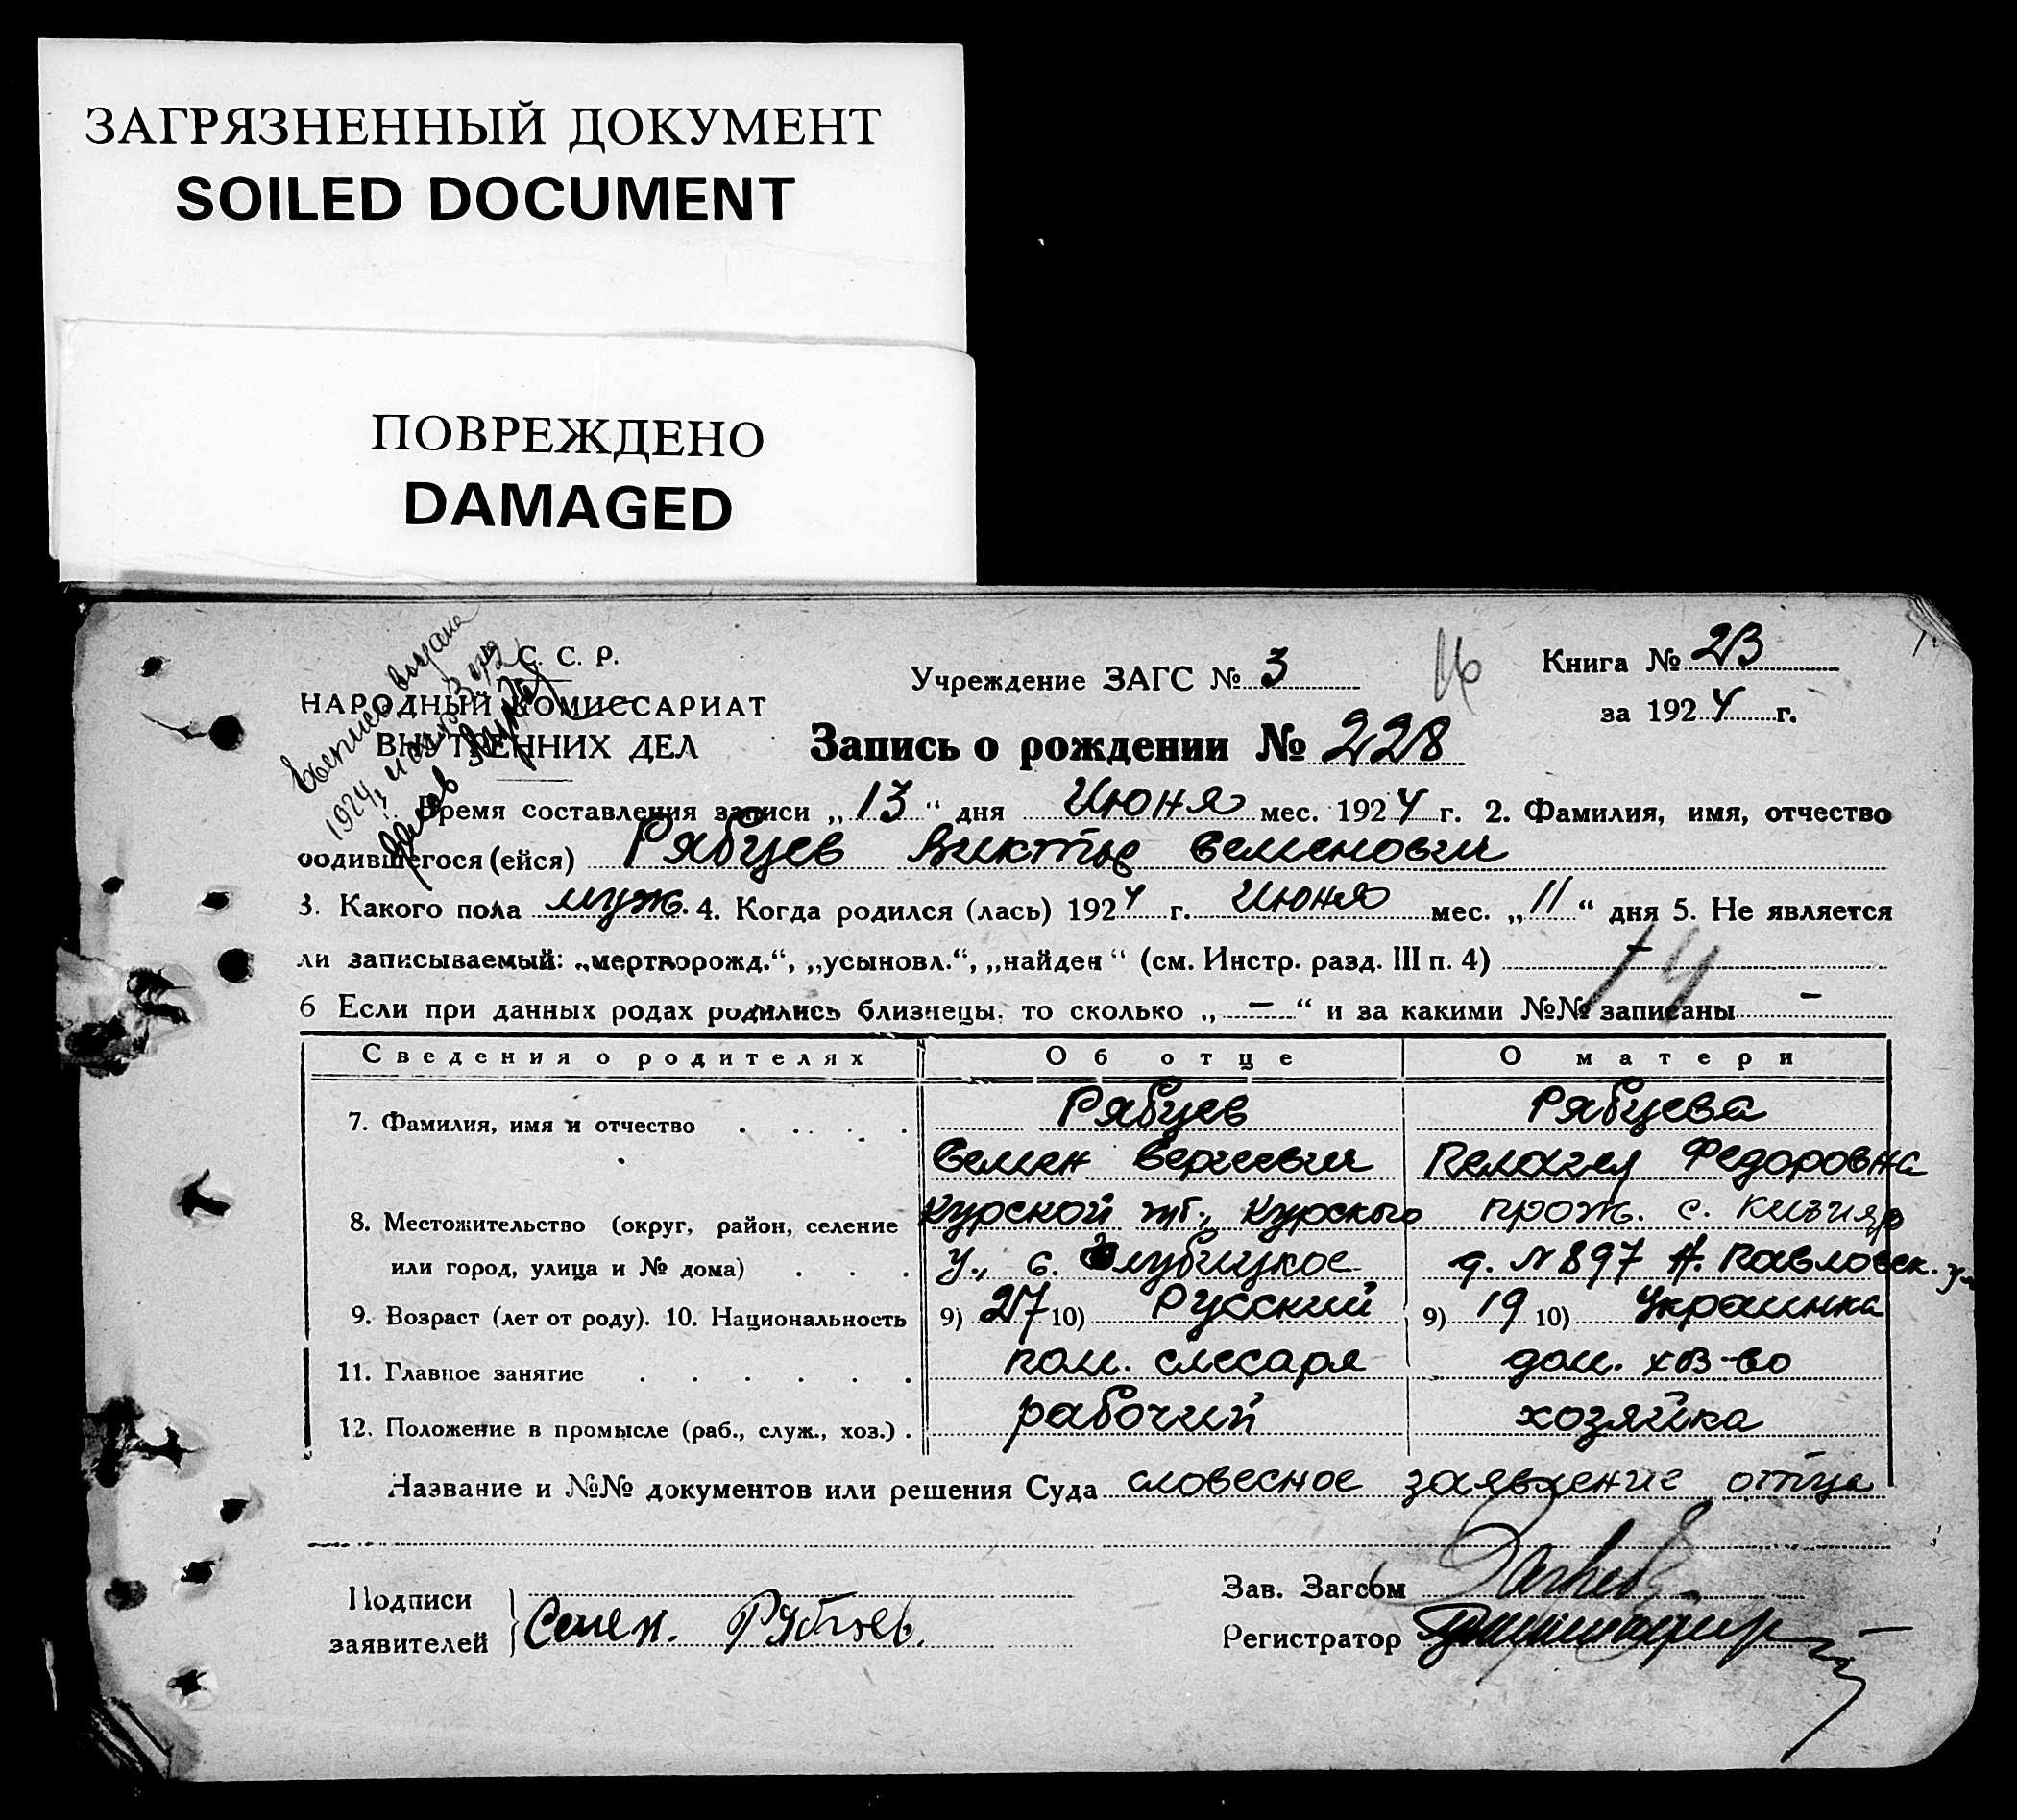 ЗАГРЯЗНЕННЫЙ ДОКУМЕНТ
SOILED DOCUMENT
ПОВРЕЖДЕНО
DAMAGED
С. С. Р.
НАРОДНЫЙ КОМИССАРИАТ
ВНУТРЕННИХ ДЕЛ
Учреждение ЗАГС № 3
16
Книга № 2В
за 1924 г.
Запись о рождении № 228
Время составления записи „13“ дня Июня мес. 1924 г. 2. Фамилия, имя, отчество
родившегося (ейся) Рябцев Виктор Семенович
3. Какого пола муж. 4. Когда родился (лась) 1924 г. Июня мес. „11“ дня 5. Не является
ли записываемый: „мертворожд.“, „усыновл.“, „найден“ (см. Инстр. разд. III п. 4) —
14
6 Если при данных родах родились близнецы, то сколько „—“ и за какими №№ записаны —
Сведения о родителях Об отце О матери
7. Фамилия, имя и отчество Рябцев Рябцева
Семен Сергеевич Пелагея Федоровна
8. Местожительство (округ, район, селение Курской губ., Курского прож. с. Кизияр
или город, улица и № дома) у., с. Глубицкое д. № 897 А. Павловск. ул
9. Возраст (лет от роду). 10. Национальность 9) 27 10) Русский 9) 19 10) Украинка
11. Главное занятие пом. слесаря дом. хв-во
12. Положение в промысле (раб., служ., хоз.) рабочий хозяйка
Название и №№ документов или решения Суда словесное заявление отца
Подписи
заявителей Семен. Рябцев.
Зав. Загсом
Регистратор